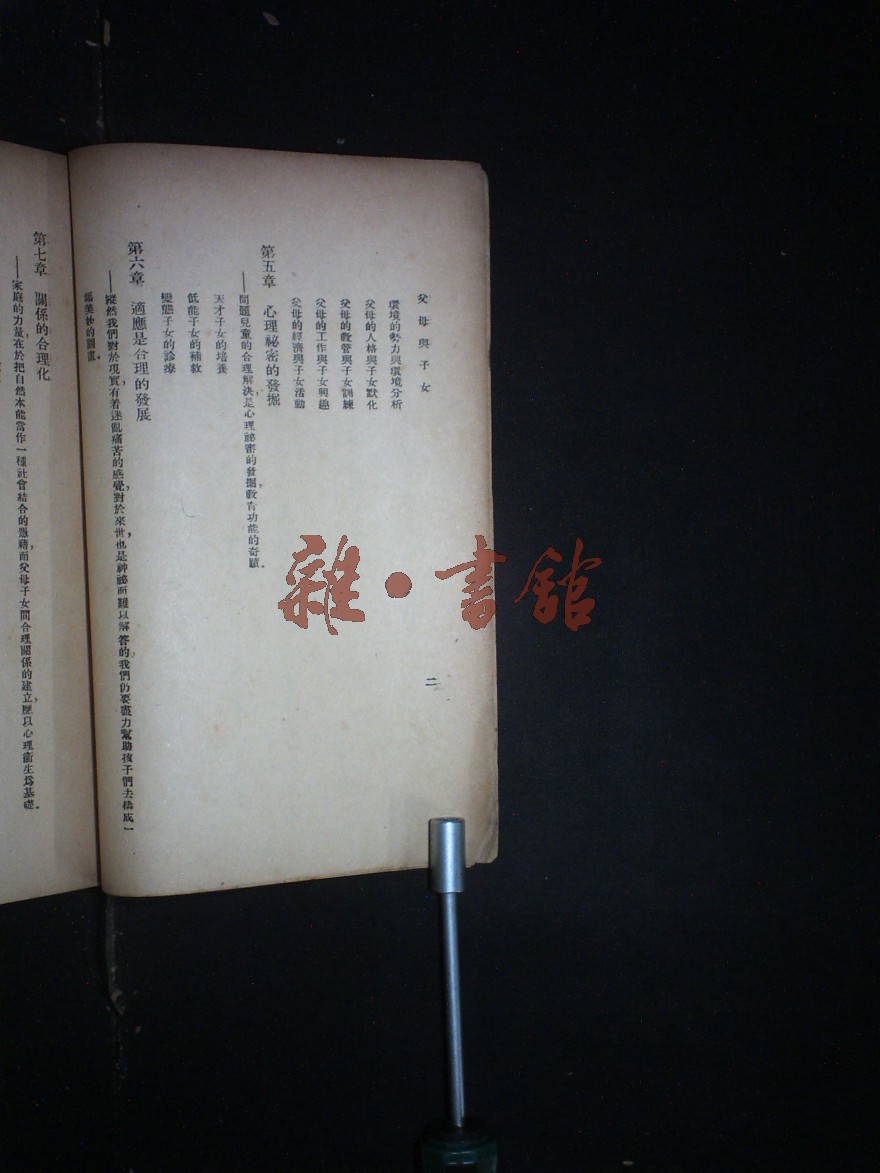 父母與子女
環境的勢力與環境分析
父母的人格與子女默化
父母的教管與子女訓練
父母的工作與子女興趣
父母的經濟與子女活動
第五章　心理祕密的發掘
——問題兒童的合理解決，是心理祕密的發掘，教育功能的奇蹟。
天才子女的培養
低能子女的補救
變態子女的診療
第六章　適應是合理的發展
——縱然我們對於現實有着迷亂痛苦的感覺，對於來世也是神祕而難以解答的，我們仍要盡力幫助孩子們去構成一
幅美妙的圖畫。
二
第七章　關係的合理化
——家庭的力量，在於把自然本能當作一種社會結合的憑藉，而父母子女間合理關係的建立，應以心理衛生爲基礎。
雜·書館